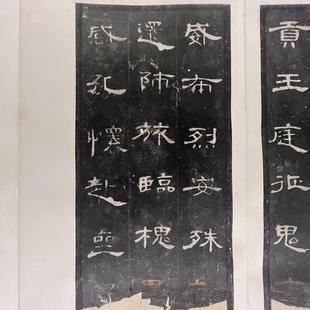 貢王庭征鬼
威布烈安殊
還師旅臨槐
感孔懷赴喪